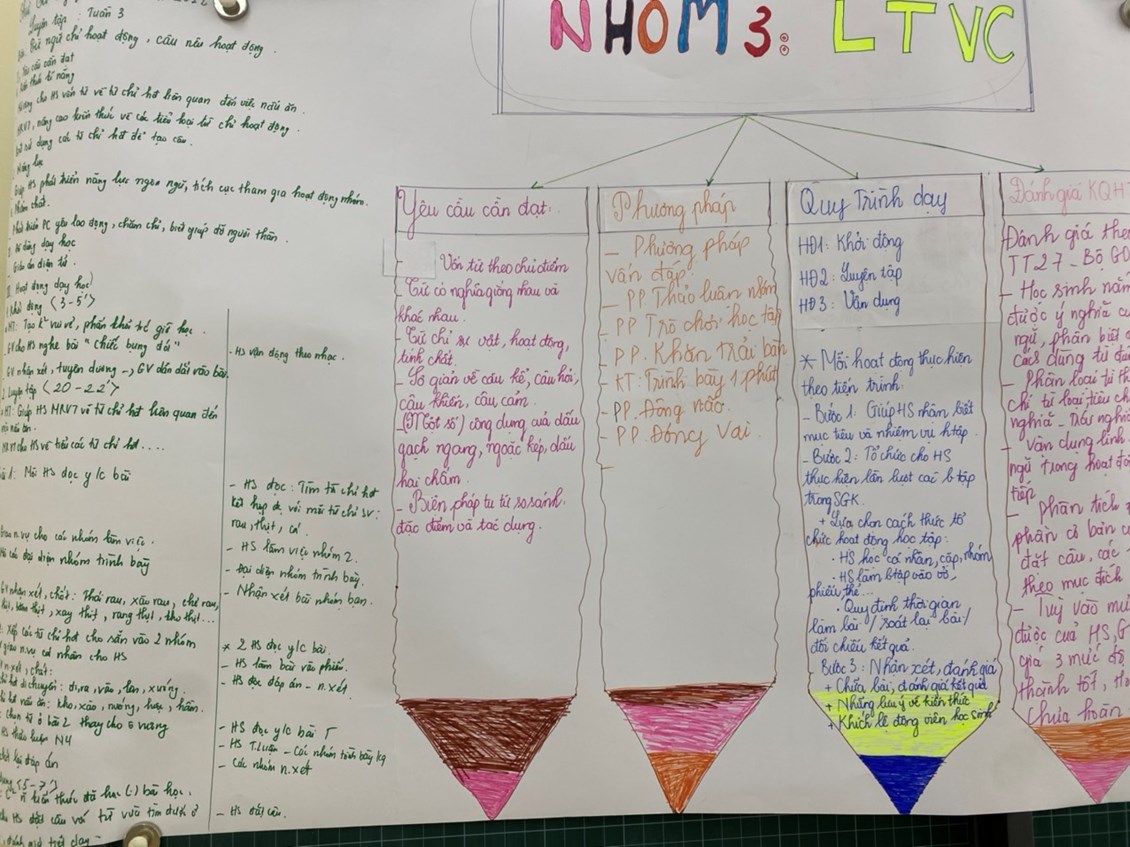 NHÓM 3: LTVC
Yêu cầu cần đạt:
Vốn từ theo chủ điểm
Từ có nghĩa giống nhau và
khác nhau.
- Từ chỉ sự vật, hoạt động,
tính chất.
- Sơ giản về câu kể, câu hỏi,
câu khiến, câu cảm.
- (Một số) công dụng của dấu
gạch ngang, ngoặc kép, dấu
hai chấm.
- Biện pháp tu từ so sánh.
đặc điểm và tác dụng.
Phương pháp
- Phương pháp
vấn đáp.
- PP Thảo luận nhóm
- PP Trò chơi học tập
- PP. Khăn trải bàn
- KT: Trình bày 1 phút
- PP. Động não.
- PP. Đóng vai.
Quy Trình dạy
HĐ1: Khởi động
HĐ2: Luyện tập
HĐ3: Vận dụng
* Mỗi hoạt động thực hiện
theo tiến trình:
- Bước 1: Giúp HS nhận biết
mục tiêu và nhiệm vụ h.tập.
- Bước 2: Tổ chức cho HS
thực hiện lần lượt các b tập
trong SGK.
+ Lựa chọn cách thức tổ
chức hoạt động học tập:
. HS học cá nhân, cặp, nhóm
. HS làm b tập vào vở,
phiếu, thẻ...
. Quy định thời gian
làm bài / soát lại bài /
đối chiếu kết quả.
Bước 3: Nhận xét, đánh giá
+ Chữa bài, đánh giá kết quả
+ Những lưu ý về kiến thức
+ Khích lệ động viên học sinh
Đánh giá KQHT
Đánh giá theo
TT27 - Bộ GD
- Học sinh nắm
được ý nghĩa
ngữ, phân biệt
cách dùng từ
- Phân loại từ
chỉ từ loại
nghĩa -
vận dụng linh
ngữ trong hoạt
tiếp
- phân tích
phần cơ bản
đặt câu, các
theo mục đích
- Tuỳ vào
được của HS, G
giá 3 mức độ
thành tốt,
Chưa hoàn
Luyện tập: Tuần 3
từ ngữ chỉ hoạt động, câu nêu hoạt động.
cho HS vốn từ về từ chỉ hđ liên quan đến việc nấu ăn.
MRVT, nâng cao kiến thức về các kiểu loại từ chỉ hoạt động.
sử dụng các từ chỉ hđ để tạo câu.
Giúp HS phát triển năng lực ngôn ngữ, tích cực tham gia hoạt động nhóm.
Phẩm chất.
Phát triển PC yêu lao động, chăm chỉ, biết giúp đỡ người thân.
dùng dạy học
Giáo án điện tử.
Hoạt động dạy học
động (3-5')
MT: Tạo k² vui vẻ, phấn khởi giờ học.
GV cho HS nghe bài "Chiếc bụng đói"
- HS vận động theo nhạc.
GV nhận xét, tuyên dương -> GV dẫn dắt vào bài.
Luyện tập (20-22')
MT: Giúp HS MRVT về từ chỉ hđ liên quan đến
nấu ăn.
cho HS về tiểu các từ chỉ hđ....
1: Mời HS đọc y/c bài
- HS đọc: Tìm từ chỉ hđ
kết hợp đc với mỗi từ chỉ SV:
rau, thịt, cá.
n.vụ cho các nhóm làm việc.
- HS làm việc nhóm 2.
đại diện nhóm trình bày
- Đại diện nhóm trình bày.
- Nhận xét bài nhóm bạn.
GV nhận xét, chốt: Thái rau, xào rau,
thịt, xay thịt, rang thịt, kho thịt...
Xếp các từ chỉ hđ cho sẵn vào 2 nhóm
* 2 HS đọc y/c bài.
giao n.vụ cá nhân cho HS
- HS làm bài vào phiếu.
- HS đọc đáp án - n.xét
n.xét, chốt:
di chuyển: đi, ra, vào, lên, xuống.
nấu ăn: kho, xào, nướng, luộc, hầm.
Chọn từ ở bài 2 thay cho ô vuông
- HS đọc y/c bài
thảo luận N4
- HS T.luận - Các nhóm trình bày kq
lại đáp án
- Các nhóm n.xét
(5-7')
kiến thức đã học (.) bài học.
HS đặt câu với từ vừa tìm được ở
- HS đặt câu.